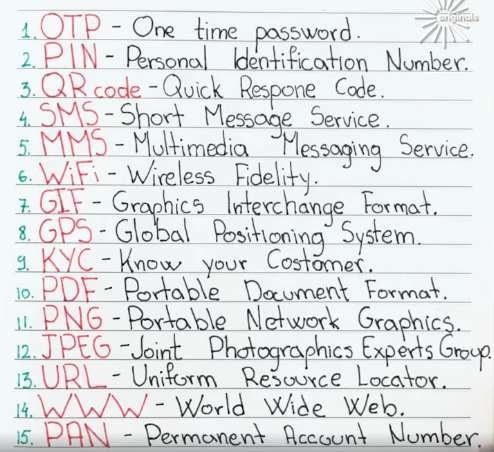 originals
1. OTP - One time password.
2. PIN - Personal Identification Number.
3. QR code - Quick Respone Code.
4. SMS - Short Message Service.
5. MMS - Multimedia Messaging Service.
6. WiFi - Wireless Fidelity.
7. GIF - Graphics Interchange Format.
8. GPS - Global Positioning System.
9. KYC - Know your Costomer.
10. PDF - Portable Document Format.
11. PNG - Portable Network Graphics.
12. JPEG - Joint Photographics Experts Group.
13. URL - Uniform Resource Locator.
14. WWW - World Wide Web.
15. PAN - Permanent Account Number.